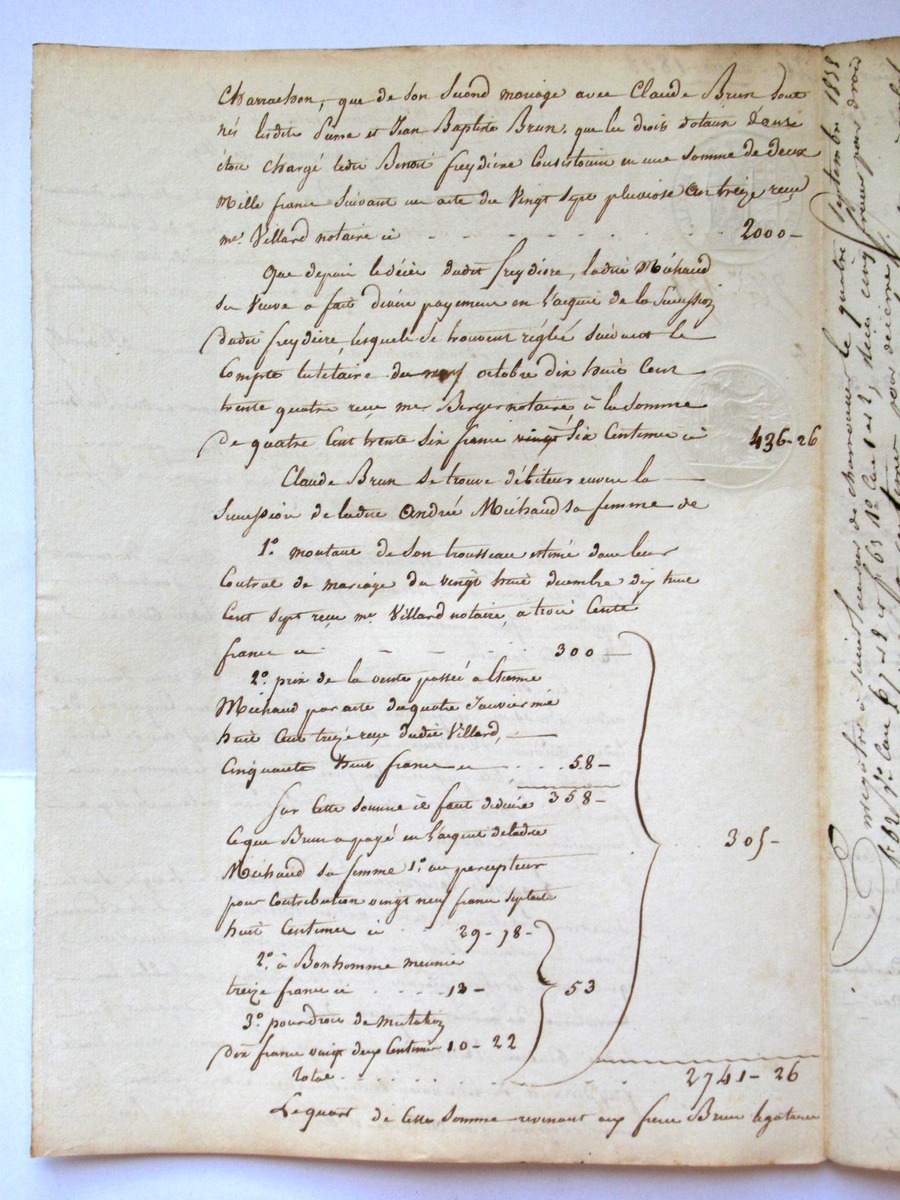 Charraesson, que de son second mariage avec Claude Brun sont
nés lesdits Pierre et Jean Baptiste Brun, que les droits dotaux d'
étoit chargé ledit Benoit freydière consistoient en une somme de deux
Mille francs suivant un acte du Vingt sept pluviose an treize reçu
me. Villard notaire ci - - - - 2000-
Que depuis le décès dudit freydière, ladite Michaud
sa Veuve a fait divers payements en l'acquit de la Succession
dudit freydière, lesquels se trouvent réglés suivant le
Compte tutelaire du neuf octobre dix huit Cent
trente quatre reçu me. Berger notaire à la somme
de quatre Cent trente six francs vingt six Centimes ci 436-26
Claude Brun se trouve débiteur envers la
Succession de ladite André Michaud sa femme de
1°. montant de son trousseau estimé dans leur
Contrat de mariage du vingt huit decembre dix huit
Cent sept reçu me. Villard notaire, a trois Cents
francs ci - - - 300-
2°. prix de la vente passée a Etienne
Michaud par acte du quatre Janvier mil
huit Cent treize reçu dudit Villard,
Cinquante huit francs ci . . . 58-
Sur Cette somme il faut déduire 358-
Ce que Brun a payé en l'acquit de ladite
Michaud sa femme 1°. au percepteur
pour Contribution vingt neuf francs septante
huit Centimes ci . . 29-78-
2°. à Bonhomme meunier
treize francs ci . . . . 13- 53
3°. pour droit de mutation
Dix francs vingt deux Centimes 10-22
305-
Total . . . . . 2741-26
Le quart de Cette somme revenant aux freres Brun légataires
Enregistré à de le quatre Septembre 1838
f°. 62 Vo. Case 67 et 8 et f° 63 Ro. Case 1 et 2, Reçu cinq francs pour droit